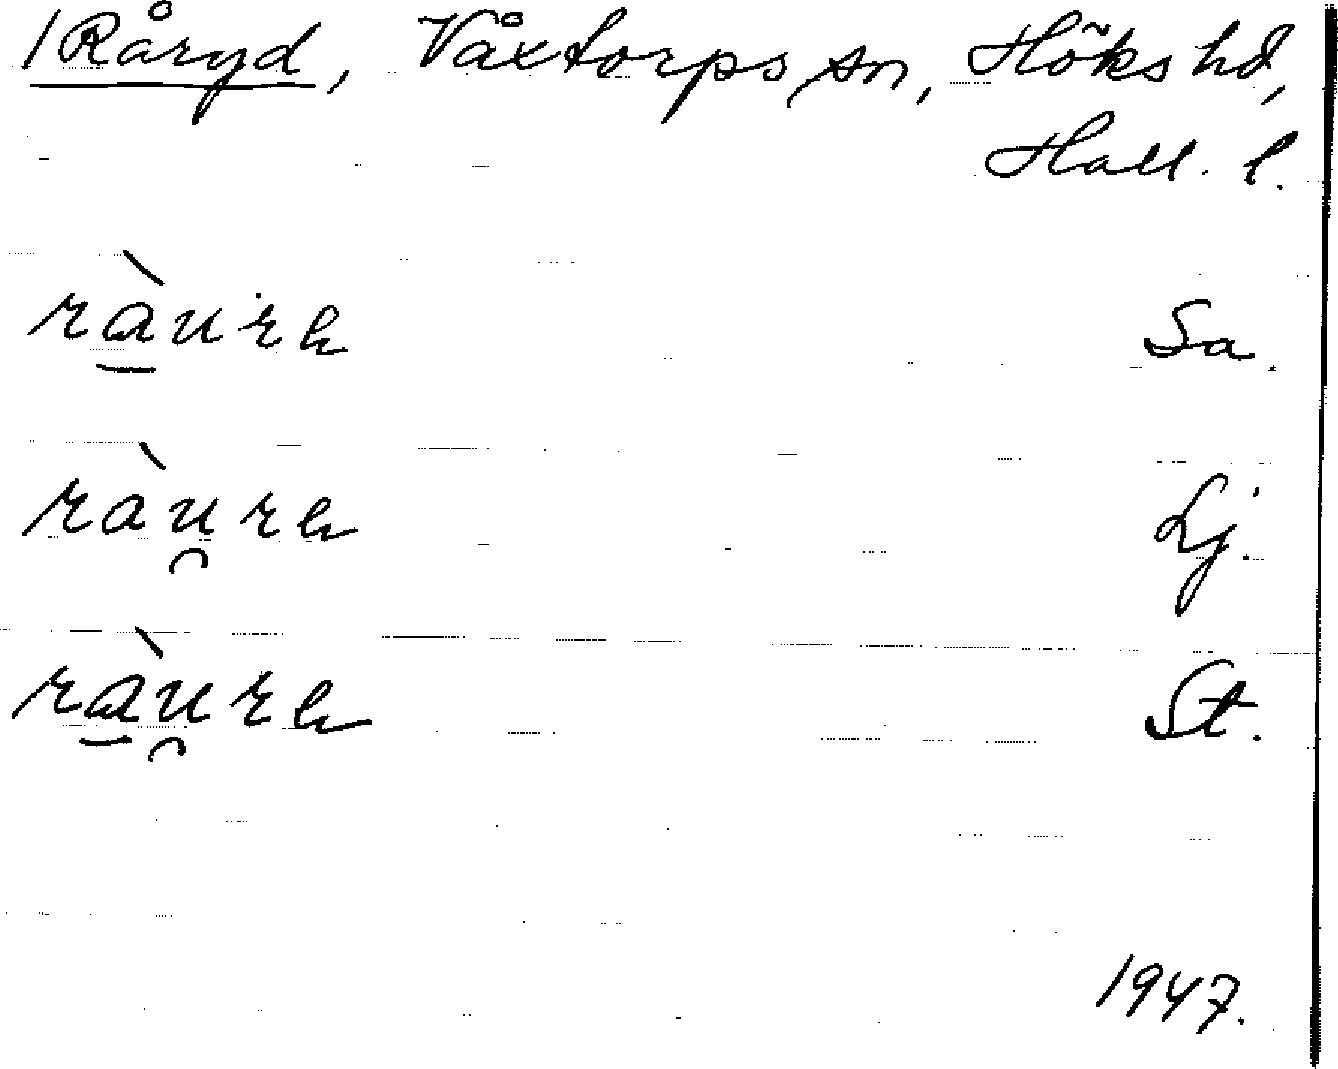 Råryd, Våxtorps sn, Höks hd,
Hall. l.
ràurə Sa.
ràu̯rə Lj.
ràu̯rə St.
1947.